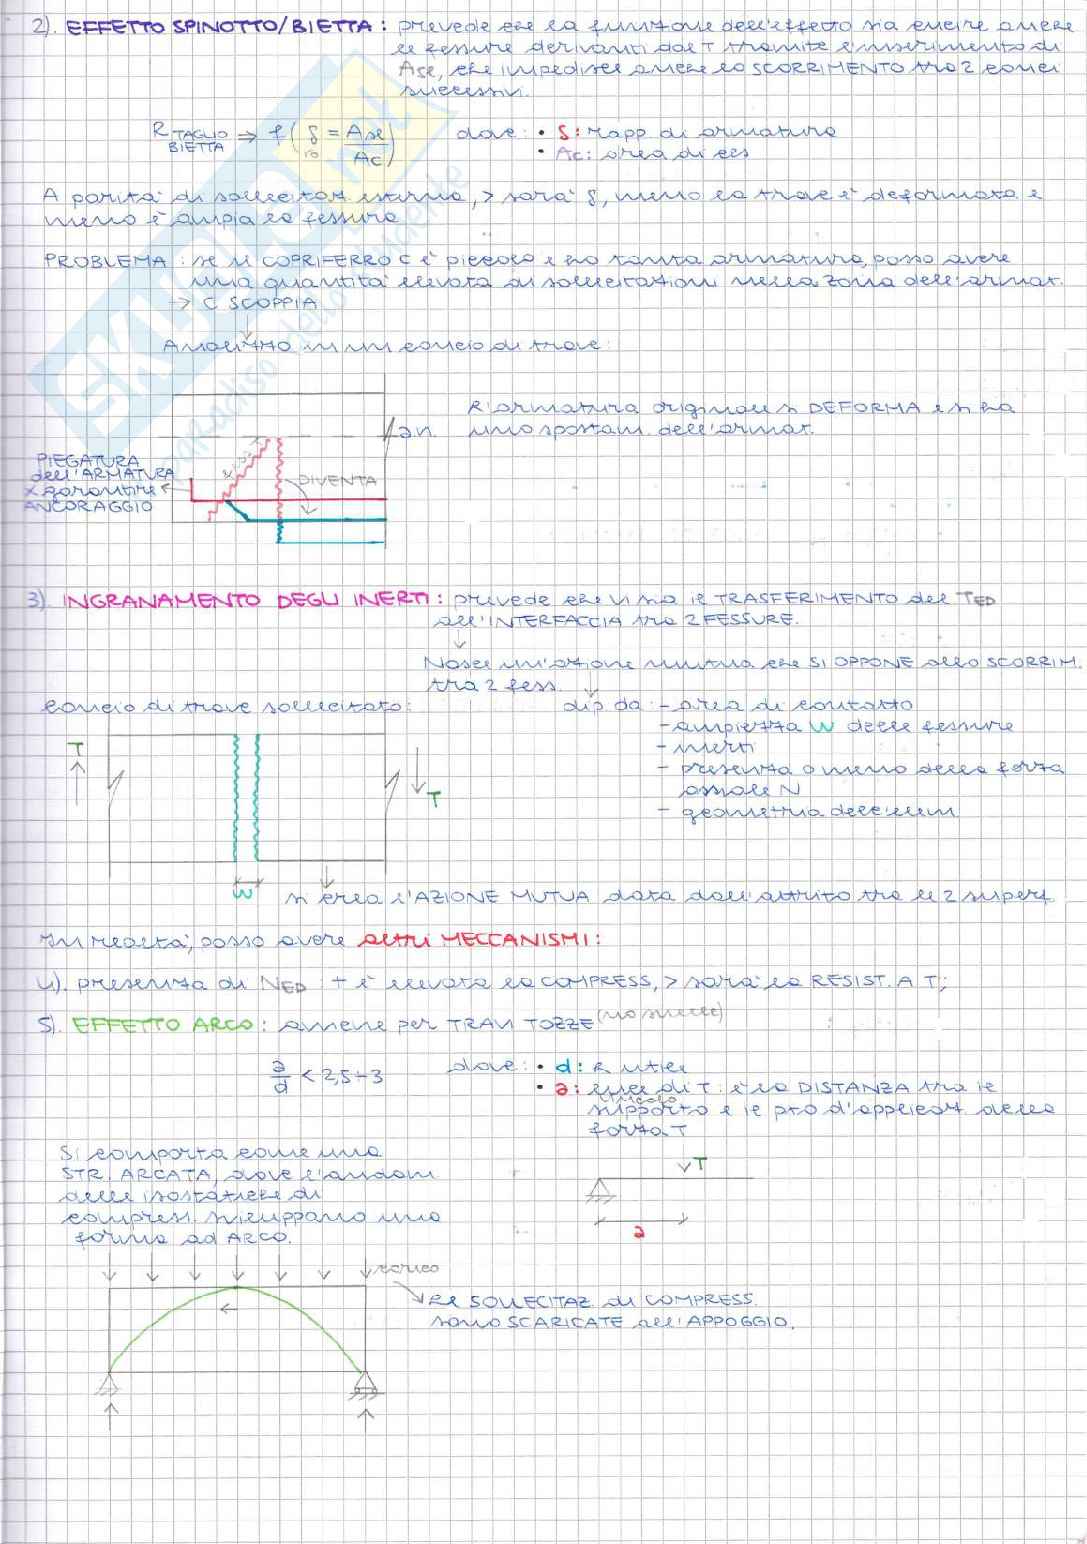 2). EFFETTO SPINOTTO/BIETTA: prevede che la funzione dell'effetto sia cucire anche
le fessure derivanti dal T tramite l'inserimento di
Ase, che impedisce anche lo SCORRIMENTO tra 2 conci
successivi.
R TAGLIO BIETTA → f(ρ = Ase/Ac) dove: • ρ: rapp. di armatura
ro • Ac: area di cls
A parità di sollecitaz. esterna, > sarà ρ, meno la trave è deformata e
meno è ampia la fessura
PROBLEMA: se il COPRIFERRO C è piccolo e ho tanta armatura, posso avere
una quantità elevata di sollecitazioni nella zona dell'armat.
→ C SCOPPIA
Analizzo in un concio di trave:
L'armatura originale si DEFORMA e si ha
a.n. uno spostam. dell'armat.
PIEGATURA
dell'ARMATURA
x garantire
ANCORAGGIO
DIVENTA
3). INGRANAMENTO DEGLI INERTI: prevede che vi sia il TRASFERIMENTO del TED
all'INTERFACCIA tra 2 FESSURE.
Nasce un'azione mutua che SI OPPONE allo SCORRIM.
tra 2 fess.
concio di trave sollecitato: dip da: - area di contatto
- ampiezza W delle fessure
T - inerti
- presenza o meno della forza
assiale N
T
- geometria dell'elem
W si crea l'AZIONE MUTUA data dall'attrito tra le 2 superf.
In realtà, posso avere altri MECCANISMI:
4). presenza di NED: + è elevata la COMPRESS, > sarà la RESIST. A T;
5). EFFETTO ARCO: avviene per TRAVI TOZZE (no snelle)
a/d < 2,5÷3 dove: • d: h utile
• a: luce di T: è la DISTANZA tra il
vincolo
supporto e il pto d'applicaz. della
forza T
Si comporta come una
STR. ARCATA, dove l'andam
delle isostatiche di
compress. sviluppano una
forma ad ARCO.
T
a
carico
Le SOLLECITAZ. di COMPRESS.
sono SCARICATE all'APPOGGIO.
SKUOLA.net
paradiso dello studente